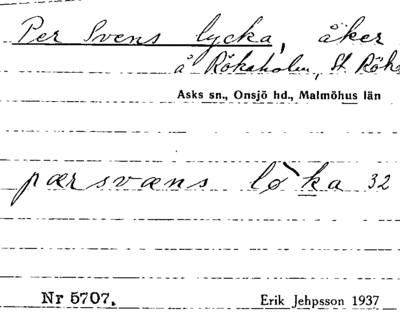 Per Svens lycka, åker
å Röksholm, St Röks
Asks sn., Onsjö hd., Malmöhus län
pærsvæns lø̀ka 32
Nr 5707. Erik Jehpsson 1937